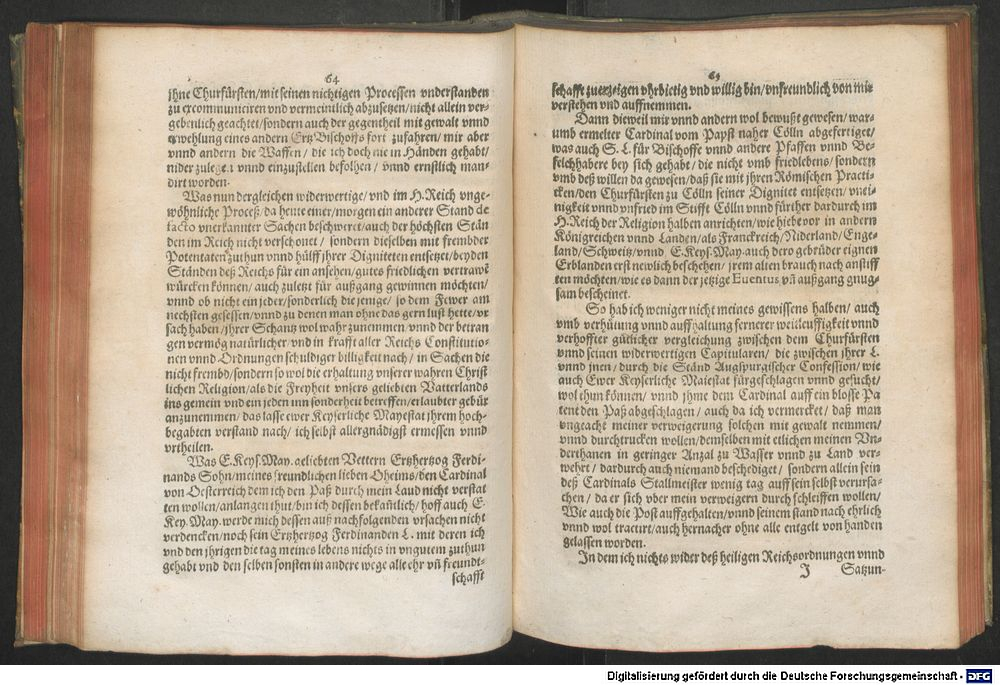 64
jhne Churfürsten/mit seinen nichtigen Processen vnderstanden
zu excommuniciren vnd vermeintlich abzusetzen/nicht allein ver-
gebenlich geachtet/sondern auch der gegentheil mit gewalt vnnd
erwehlung eines andern Ertz Bischoffs fort zufahren/mir aber
vnnd andern die Waffen/ die ich doch nie in Händen gehabt/
nider zulegen vnnd einzustellen befolhen/ vnnd ernstlich man-
dirt worden.
Was nun dergleichen widerwertige/vnd im H. Reich vnge-
wöhnliche Proceß/da heute einer/morgen ein anderer Stand de
facto vnerkannter Sachen beschweret/auch der höchsten Stän
den im Reich nicht verschonet/ sondern dieselben mit frembder
Potentaten zuthun vnnd hülff jhrer Digniteten entsetzet/beyden
Ständen deß Reichs für ein ansehen/gutes friedlichen vertrawẽ
würcken können/ auch zuletzt für außgang gewinnen möchten/
vnnd ob nicht ein jeder/sonderlich die jenige/ so dem Fewer am
nechsten gesessen/vnnd zu denen man ohne das gern lust hette/vr
sach haben/jhrer Schantz wol wahr zunemmen/vnnd der betran
gen vermög natürlicher/vnd in krafft aller Reichs Constitutio-
nen vnnd Ordnungen schuldiger billigkeit nach/ in Sachen die
nicht frembd/sondern so wol die erhaltung vnserer wahren Christ
lichen Religion/als die Freyheit vnsers geliebten Vatterlands
ins gemein vnd ein jeden inn sonderheit betreffen/erlaubter gebür
anzunemmen/das lasse ewer Keyserliche Mayestat jhrem hoch-
begabten verstand nach/ ich selbst allergnädigst ermessen vnnd
vrtheilen.
Was E. Keys. May. geliebten Vettern Ertzhertzog Ferdi-
nands Sohn/meines freundlichen lieben Oheims/den Cardinal
von Oesterreich dem ich den Paß durch mein Laud nicht verstat
ten wollen/anlangen thut/bin ich dessen bekañtlich/ hoff auch E.
Key. May. werde mich dessen auß nachfolgenden vrsachen nicht
verdencken/noch sein Ertzhertzog Ferdinanden L. mit deren ich
vnd den jhrigen die tag meines lebens nichts in vngutem zuthun
gehabt vnd den selben sonsten in andere wege alle ehr vñ freundt-
schafft
65
schafft zuerzeigen vhrbietig vnd willig bin/vnfreundlich von mir
verstehen vnd auffnemmen.
Dann dieweil mir vnnd andern wol bewußt gewesen/war-
umb ermelter Cardinal vom Papst naher Cölln abgefertiget/
was auch S. L. für Bischoffe vnnd andere Pfaffen vnnd Be-
felchhabere bey sich gehabt/die nicht vmb friedlebens/sondern
vmb deß willen da gewesen/daß sie mit jhren Römischen Practi-
cken/den Churfürsten zu Cölln seiner Dignitet entsetzen/vnei-
nigkeit vnnd vnfried im Stifft Cölln vnnd fürther dardurch im
H. Reich der Religion halben anrichten/wie hiebevor in andern
Königreichen vnnd Landen/als Franckreich/Niderland/Enge-
land/Schweitz/vnnd E. Keys. May. auch dero gebrüder eignen
Erblanden erst newlich beschehen/ jrem alten brauch nach anstiff
ten möchten/wie es dann der jetzige Euentus vñ außgang gnug-
sam bescheinet.
So hab ich weniger nicht meines gewissens halben/ auch
vmb verhütung vnnd auffhaltung fernerer weitleuffigkeit vnnd
verhoffter gütlicher vergleichung zwischen dem Churfürsten
vnnd seinen widerwertigen Capitularen/ die zwischen jhrer L.
vnnd jnen/durch die Ständ Augspurgischer Confession/ wie
auch Ewer Keyserliche Maiestat fürgeschlagen vnnd gesucht/
wol thun können/ vnnd jhme dem Cardinal auff ein blosse Pa
tent den Paß abgeschlagen/ auch da ich vermercket/ daß man
vngeacht meiner verweigerung solchen mit gewalt nemmen/
vnnd durchtrucken wollen/demselben mit etlichen meinen Vn-
derthanen in geringer Anzal zu Wasser vnnd zu Land ver-
wehrt/ dardurch auch niemand beschediget/ sondern allein sein
deß Cardinals Stallmeister wenig tag auff sein selbst verursa-
chen/ da er sich vber mein verweigern durch schleiffen wollen/
Wie auch die Post auffgehalten/vnnd seinem stand nach ehrlich
vnnd wol tractirt/auch hernacher ohne alle entgelt von handen
gelassen worden.
In dem ich nichts wider deß heiligen Reichsordnungen vnnd
J Satzun-
Digitalisierung gefördert durch die Deutsche Forschungsgemeinschaft - DFG